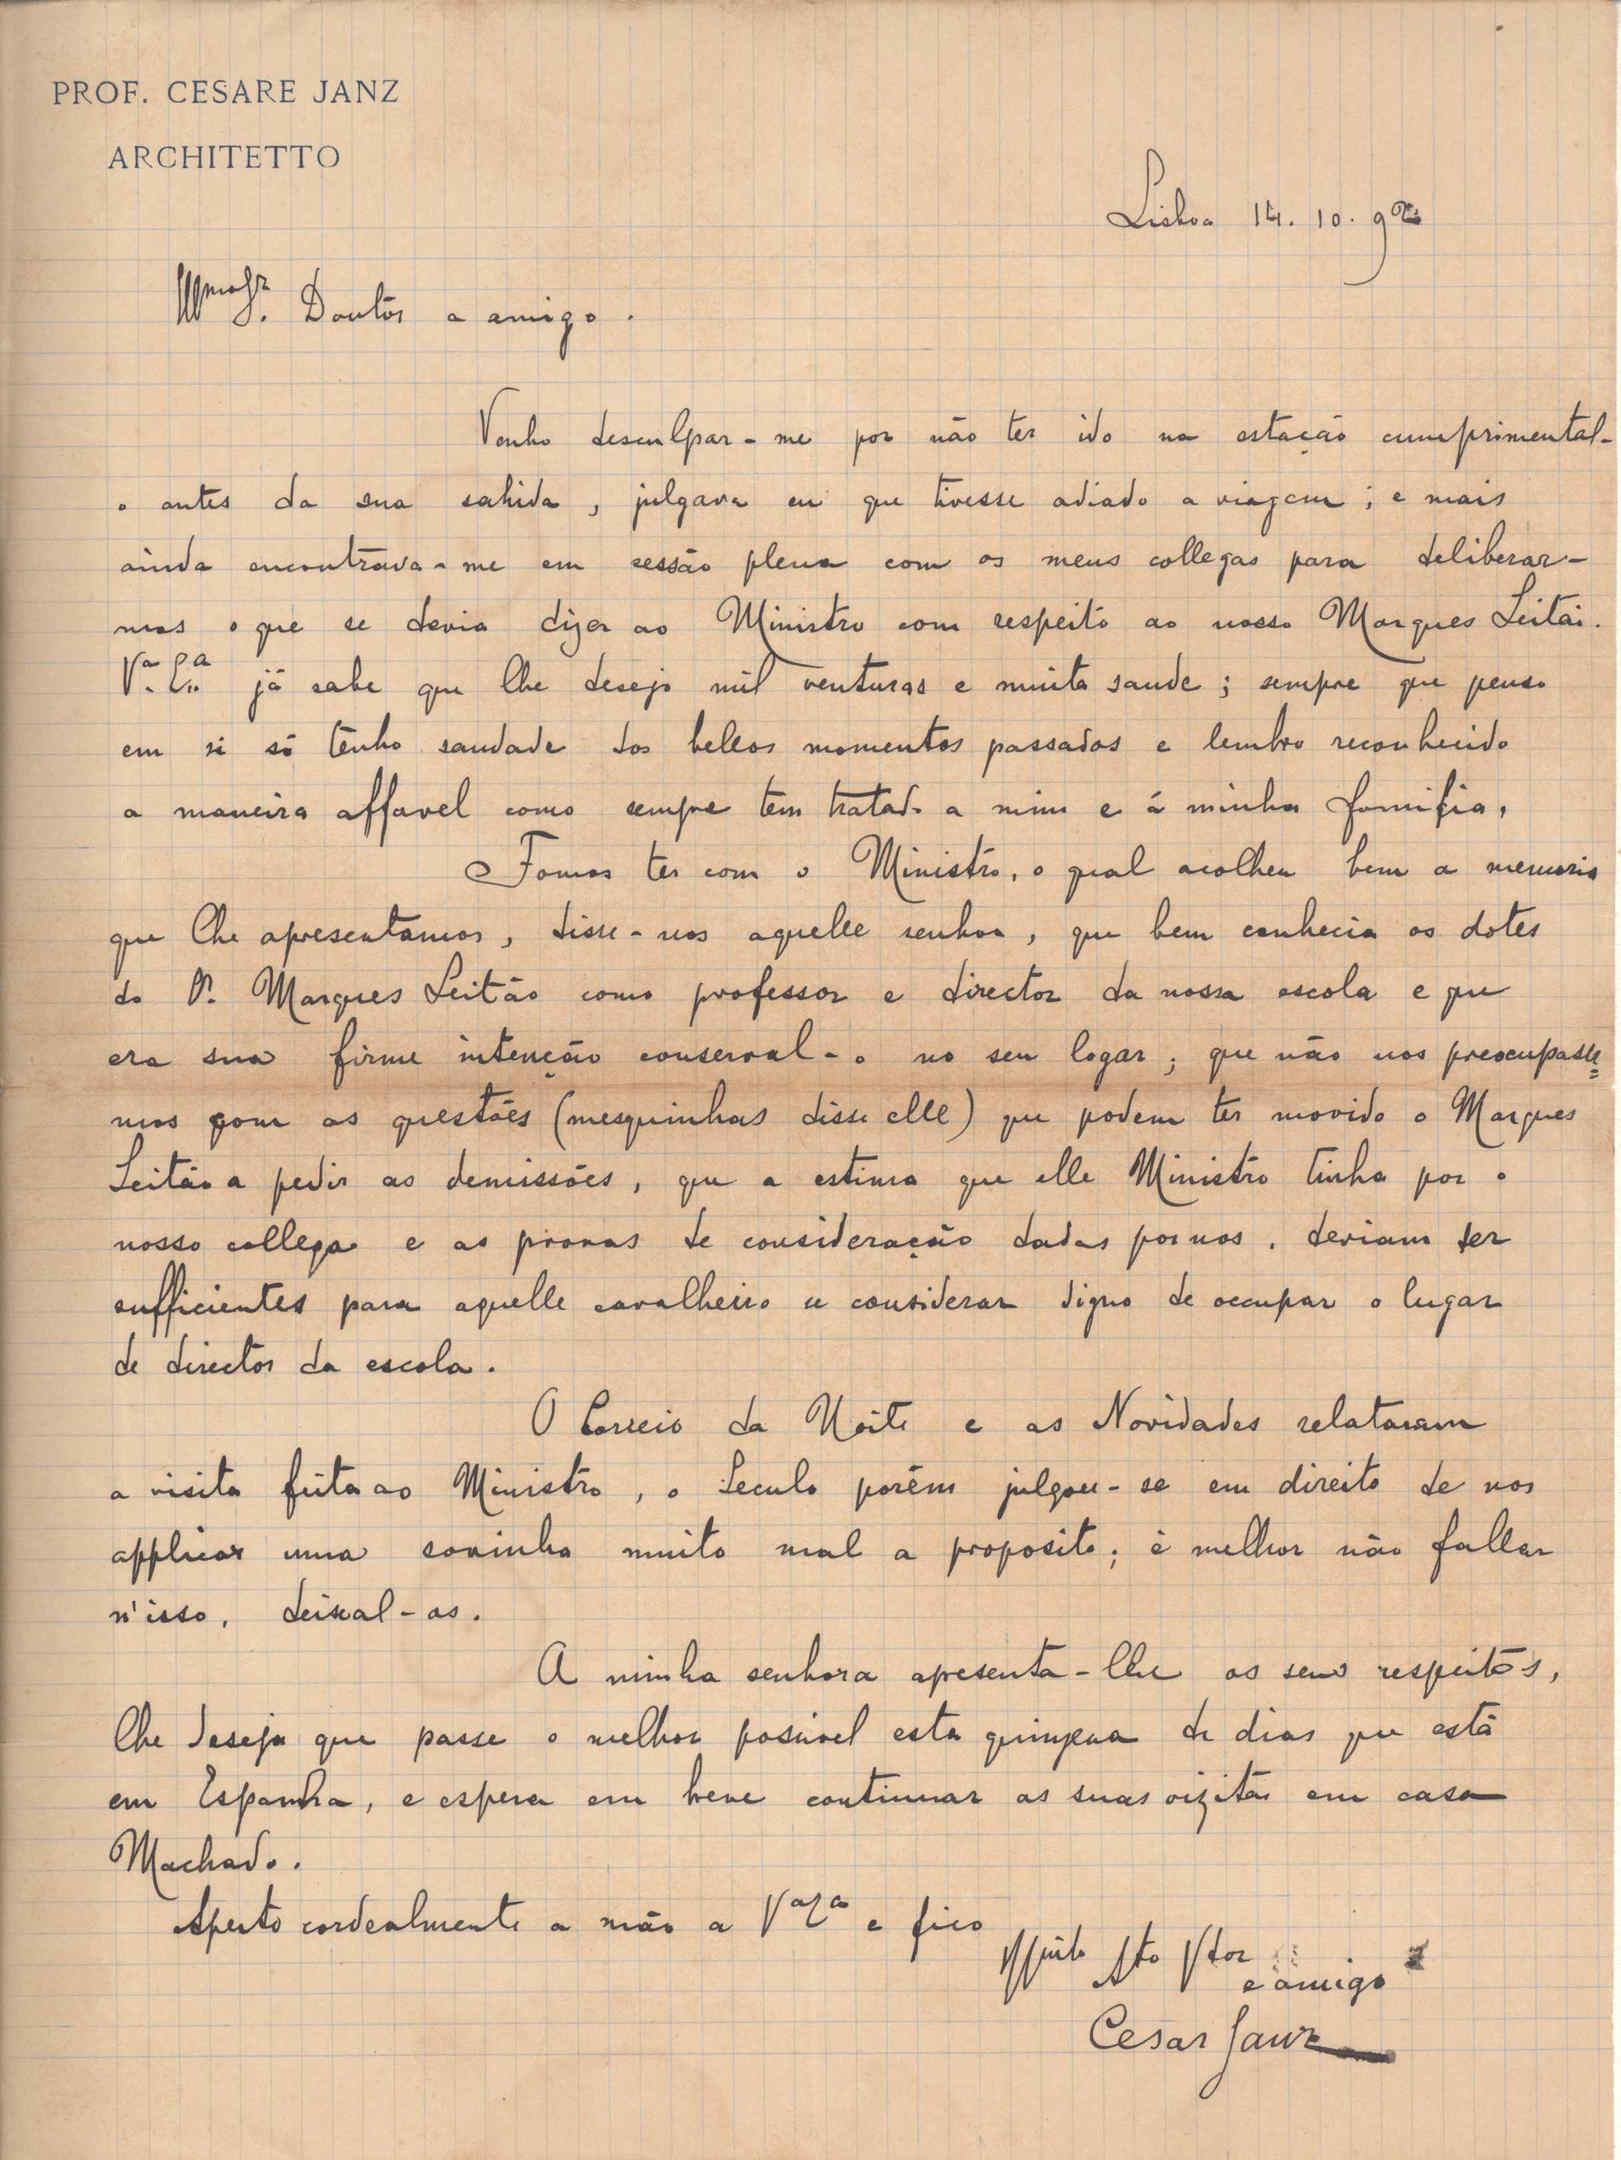 PROF. CESARE JANZ
ARCHITETTO
Lisboa 14. 10. 92
Illmo Sr. Doutôr e amigo.
Venho desculpar-me por não ter ido na estação cumprimental-
o antes da sua sahida, julgava eu que tivesse adiado a viagem; e mais
ainda encontrava-me em sessão plena com os meus collegas para deliberar-
mos o que se devia dizer ao Ministro com respeito ao nosso Marques Leitão.
Va. Exa. já sabe que lhe desejo mil venturas e muita saude; sempre que penso
em si só tenho saudade dos bellos momentos passados e lembro reconhecido
a maneira affavel como sempre tem tratado a mim e á minha familia,
Fomos ter com o Ministro, o qual acolheu bem a memoria
que lhe apresentamos, disse-nos aquelle senhor, que bem conhecia os dotes
do Marques Leitão como professor e director da nossa escola e que
era sua firme intenção conserval-o no seu logar; que não nos preocupasse=
mos com as questões (mesquinhas disse elle) que podem ter movido o Marques
Leitão a pedir as demissões, que a estima que elle Ministro tinha por o
nosso collega e as provas de consideração dadas por nos, deviam ser
sufficientes para aquelle cavalheiro se considerar digno de occupar o lugar
de director da escola.
O Correio da Noite e as Novidades relataram
a visita feita ao Ministro, o Seculo porém julgou-se em direito de nos
applicar uma sovinha muito mal a proposito; é melhor não fallar
n'isso, deixal-os.
A minha senhora apresenta-lhe os seus respeitos,
lhe deseja que passe o melhor possivel esta quinzena de dias que está
em Espanha, e espera em breve continuar as suas vizitas em casa
Machado.
Aperto cordealmente a mão a Va Exa e fico
Muito Atto Vdor
e amigo
Cesar Janz